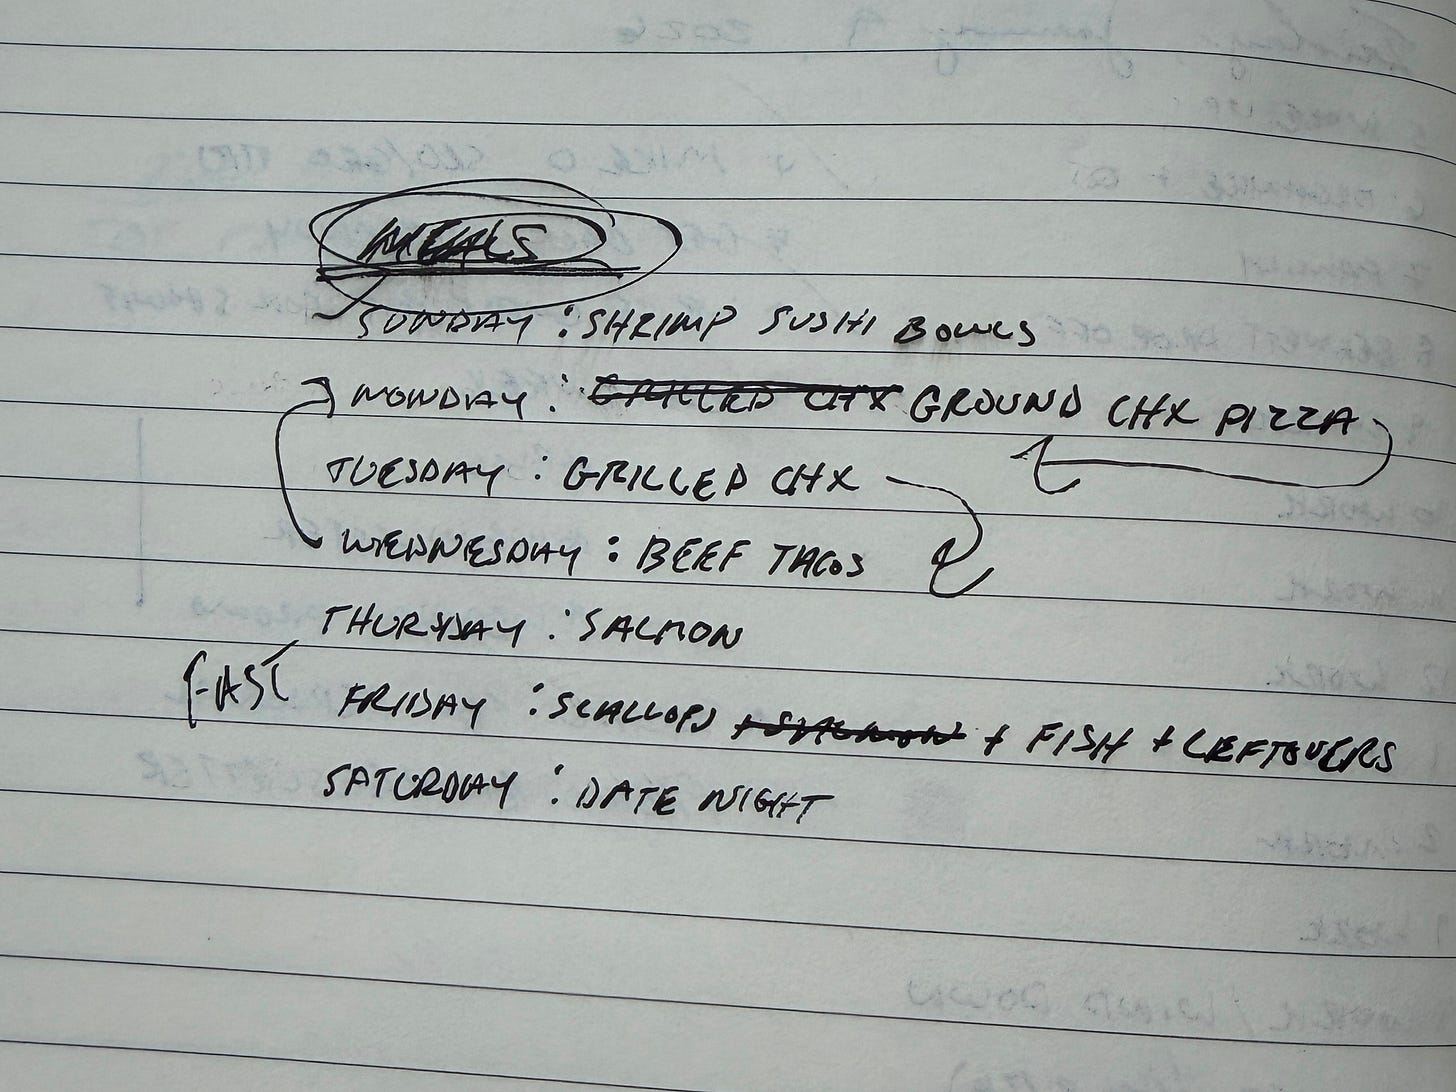 MEALS
SUNDAY : SHRIMP SUSHI BOWLS
MONDAY : GRILLED CHX GROUND CHX PIZZA
TUESDAY : GRILLED CHX
WEDNESDAY : BEEF TACOS
THURSDAY : SALMON
FAST
FRIDAY : SCALLOPS + SALMON + FISH + LEFTOVERS
SATURDAY : DATE NIGHT